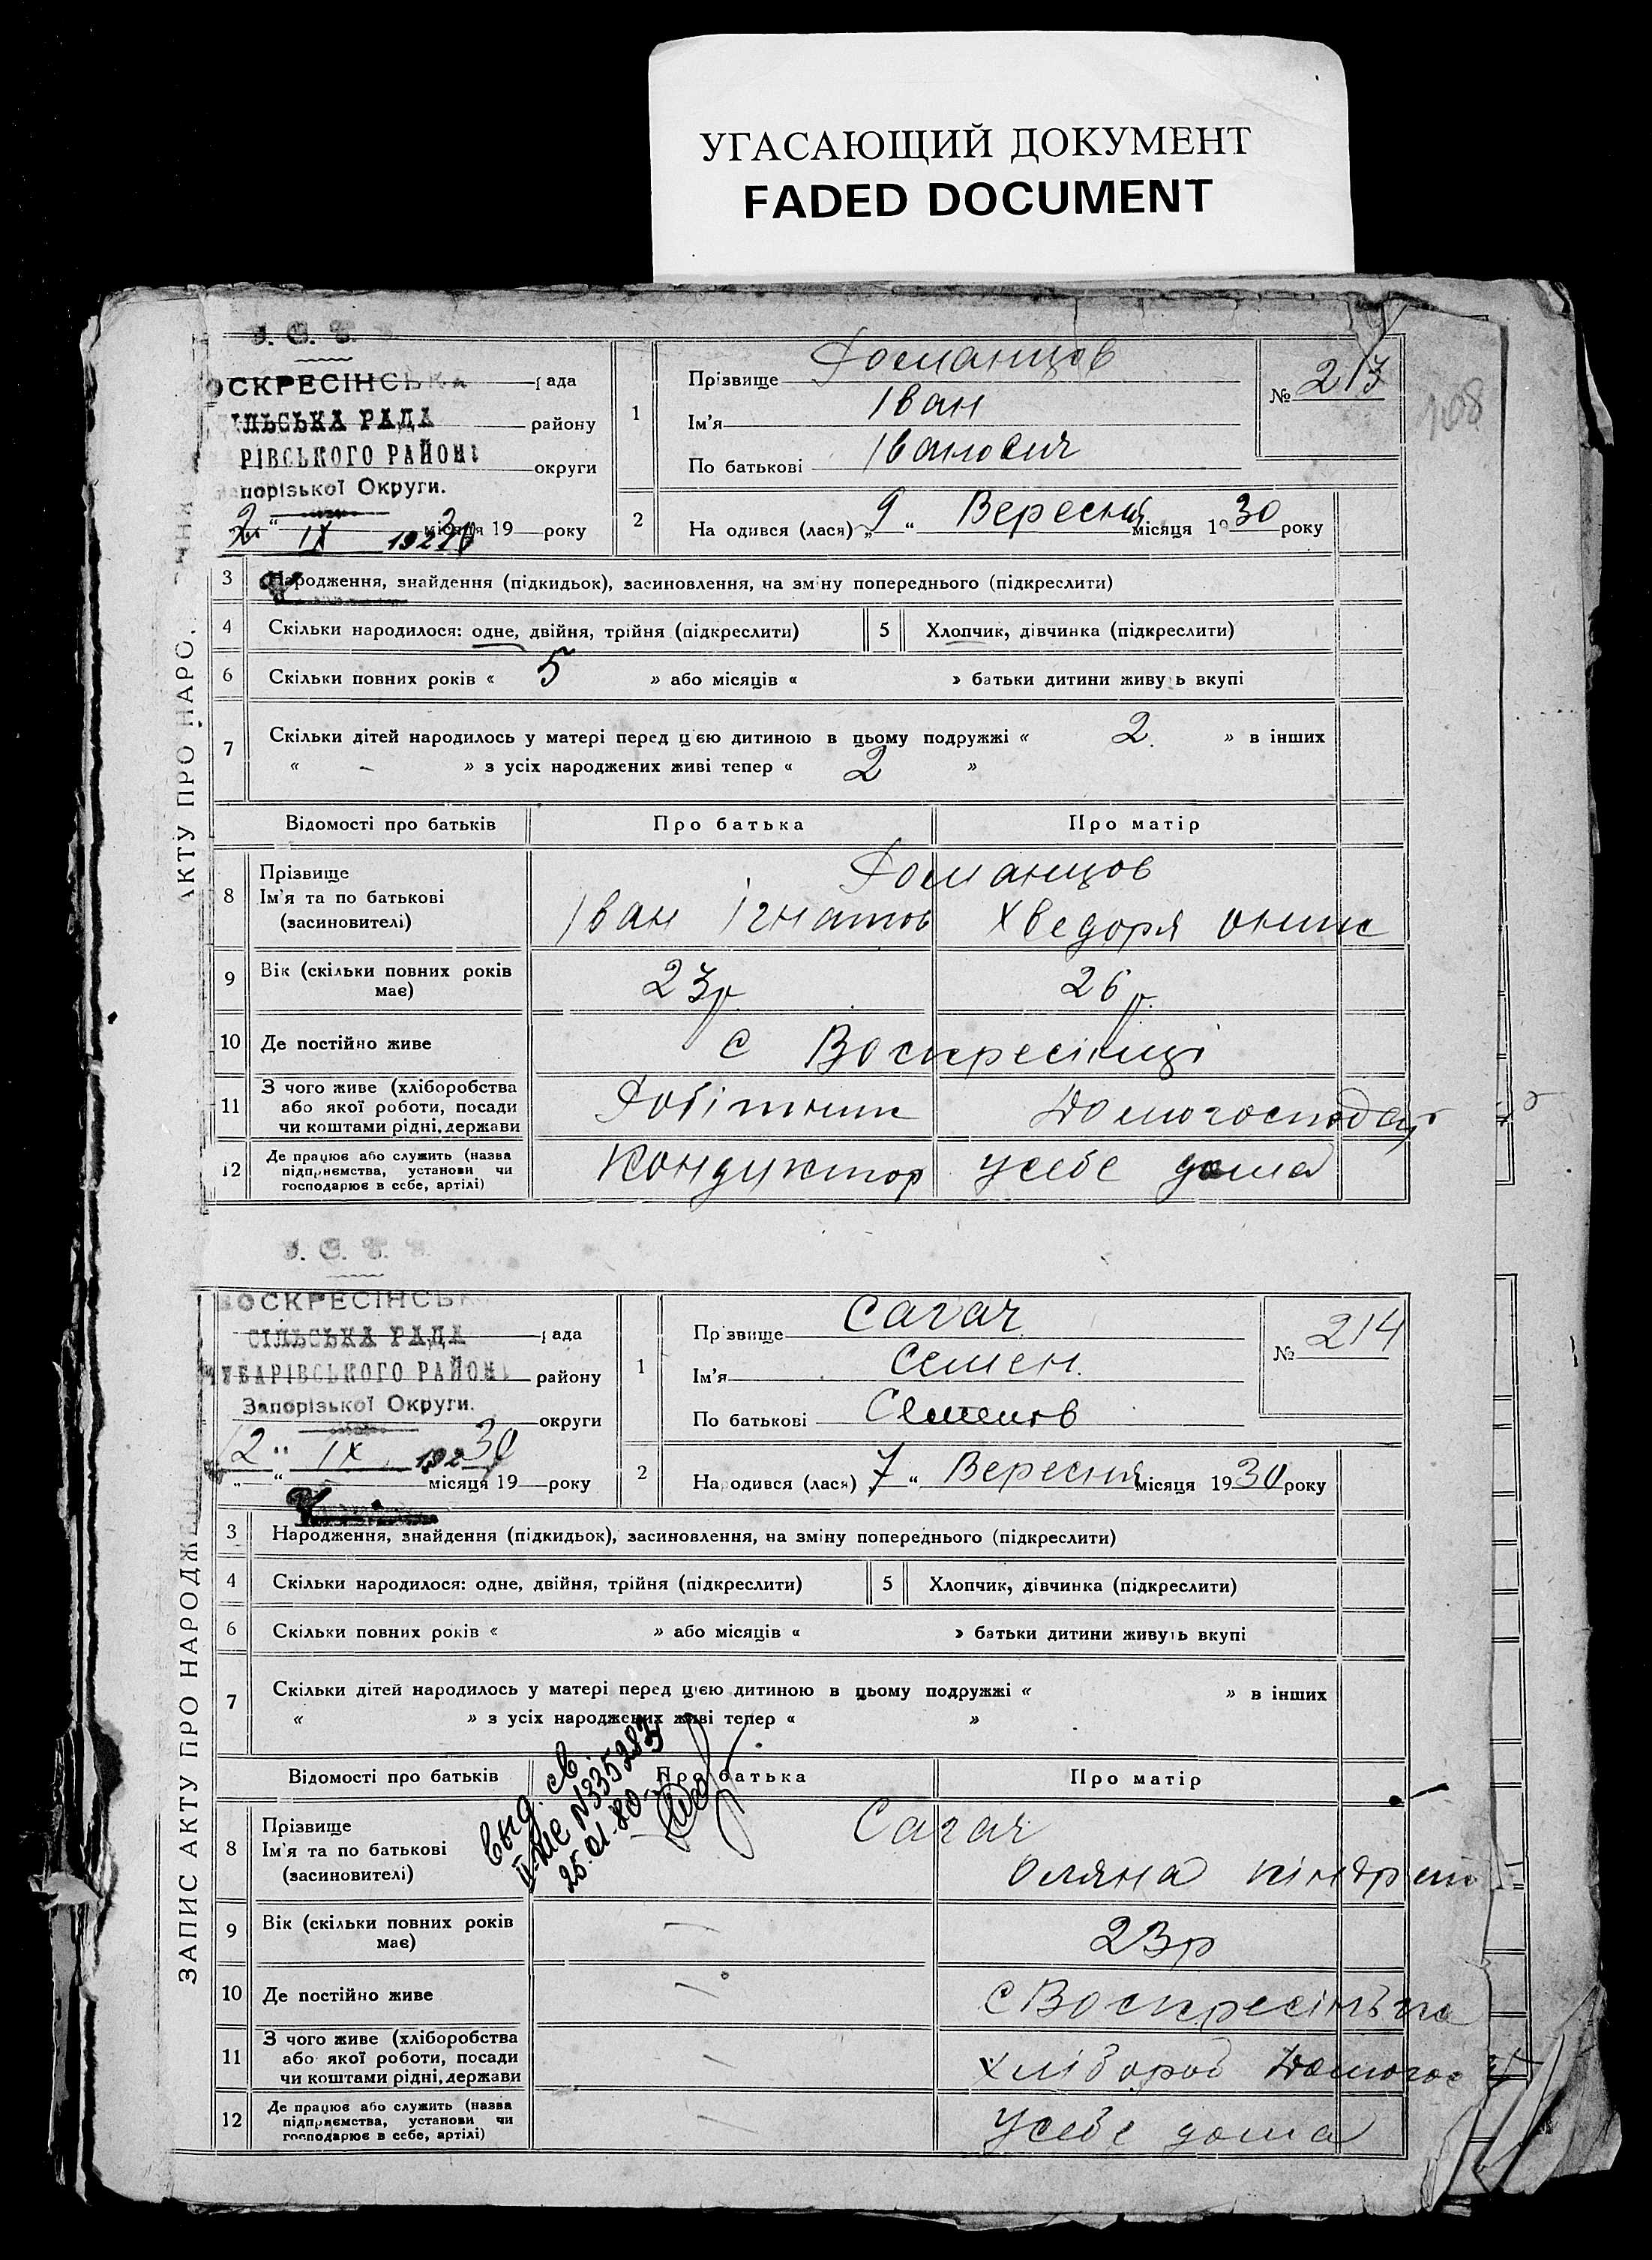 УГАСАЮЩИЙ ДОКУМЕНТ
FADED DOCUMENT
108
АКТУ ПРО НАРО
У. С. Р. Р.
ОСКРЕСІНСЬКА рада
ІЛЬСЬКА РАДА району
РІВСЬКОГО РАЙОНУ округи
порізької Округи.
2 " IX 192 місяця 19 року
1 Прізвище Романцов
Ім'я Іван
По батькові Іванович
№ 213
2 На одився (лася) „ 9 " Вересня місяця 1930 року
3 Народження, знайдення (підкидьок), засиновлення, на зміну попереднього (підкреслити)
4 Скільки народилося: одне, двійня, трійня (підкреслити) 5 Хлопчик, дівчинка (підкреслити)
6 Скільки повних років « 5 » або місяців « » батьки дитини живу ь вкупі
7 Скільки дітей народилось у матері перед цією дитиною в цьому подружжі « 2. » в інших
« - » з усіх народжених живі тепер « 2 »
Відомості про батьків Про батька Про матір
8 Прізвище Романцов
Ім'я та по батькові Іван Ігнатов Хведоря
(засиновителі)
9 Вік (скільки повних років має) 23р 26р
10 Де постійно живе с Воскресінці
11 З чого живе (хліборобства або якої роботи, посади чи коштами рідні, держави Робітник Домогосподар
12 Де працює або служить (назва підприємства, установи чи господарює в себе, артілі) Кондуктор у себе дома
ЗАПИС АКТУ ПРО НАРОДЖЕ
У. С. Р. Р.
ВОСКРЕСІНСЬК рада
СІЛЬСЬКА РАДА
УБАРІВСЬКОГО РАЙОНУ району
Запорізької Округи. округи
12 " IX 192 30
„ " місяця 19 року
1 Прізвище Сагач
Ім'я Семен.
По батькові Семенов
№ 214
2 Народився (лася) 7 " Вересня місяця 1930 року
3 Народження, знайдення (підкидьок), засиновлення, на зміну попереднього (підкреслити)
4 Скільки народилося: одне, двійня, трійня (підкреслити) 5 Хлопчик, дівчинка (підкреслити)
6 Скільки повних років « » або місяців « » батьки дитини живуть вкупі
7 Скільки дітей народилось у матері перед цією дитиною в цьому подружжі « » в інших
« » з усіх народжених живі тепер « »
Выд. св.
N 335283
25.01.80
Відомості про батьків Про батька Про матір
8 Прізвище Сагач
Ім'я та по батькові Оляна
(засиновителі)
9 Вік (скільки повних років має) — 23р
10 Де постійно живе — с Воскресінька
11 З чого живе (хліборобства або якої роботи, посади чи коштами рідні, держави — хлібороб Домогос
12 Де працює або служить (назва підприємства, установи чи господарює в себе, артілі) — У себе дома